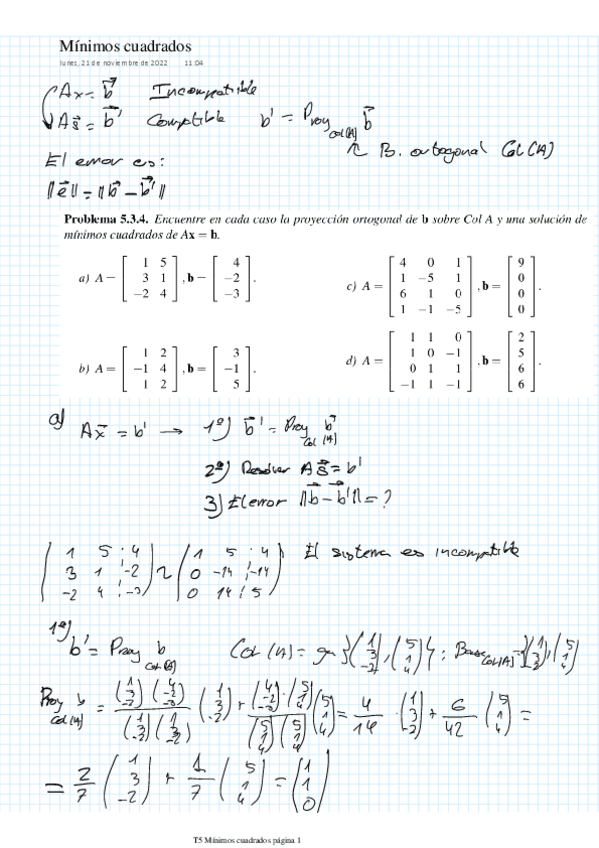 Mínimos cuadrados
lunes, 21 de noviembre de 2022 11:04
Ax = b Incompatible
As = b' Compatible b' = Proy Col(A) b
B. ortogonal Col(A)
El error es:
||e|| = ||b - b'||
Problema 5.3.4. Encuentre en cada caso la proyección ortogonal de b sobre Col A y una solución de
mínimos cuadrados de Ax = b.
a) A = [1 5; 3 1; -2 4], b = [4; -2; -3].
c) A = [4 0 1; 1 -5 1; 6 1 0; 1 -1 -5], b = [9; 0; 0; 0].
b) A = [1 2; -1 4; 1 2], b = [3; -1; 5].
d) A = [1 1 0; 1 0 -1; 0 1 1; -1 1 -1], b = [2; 5; 6; 6].
a) Ax = b' → 1º) b' = Proy Col(A) b
2º) Resolver As = b'
3) El error ||b - b'|| = ?
(1 5 4; 3 1 -2; -2 4 -3) ~ (1 5 4; 0 -14 -14; 0 14 5) El sistema es incompatible
1º)
b' = Proy Col(A) b Col(A) = gen{(1 3 -2), (5 1 4)}; Base Col(A) = {(1 3 -2), (5 1 4)}
Proy Col(A) b = (1 3 -2)(4 -2 -3) / (1 3 -2)(1 3 -2) (1 3 -2) + (4 -2 -3)·(5 1 4) / (5 1 4)(5 1 4) (5 1 4) = 4/14 · (1 3 -2) + 6/42 (5 1 4) =
= 2/7 (1 3 -2) + 1/7 (5 1 4) = (1 1 0)
T5 Mínimos cuadrados página 1